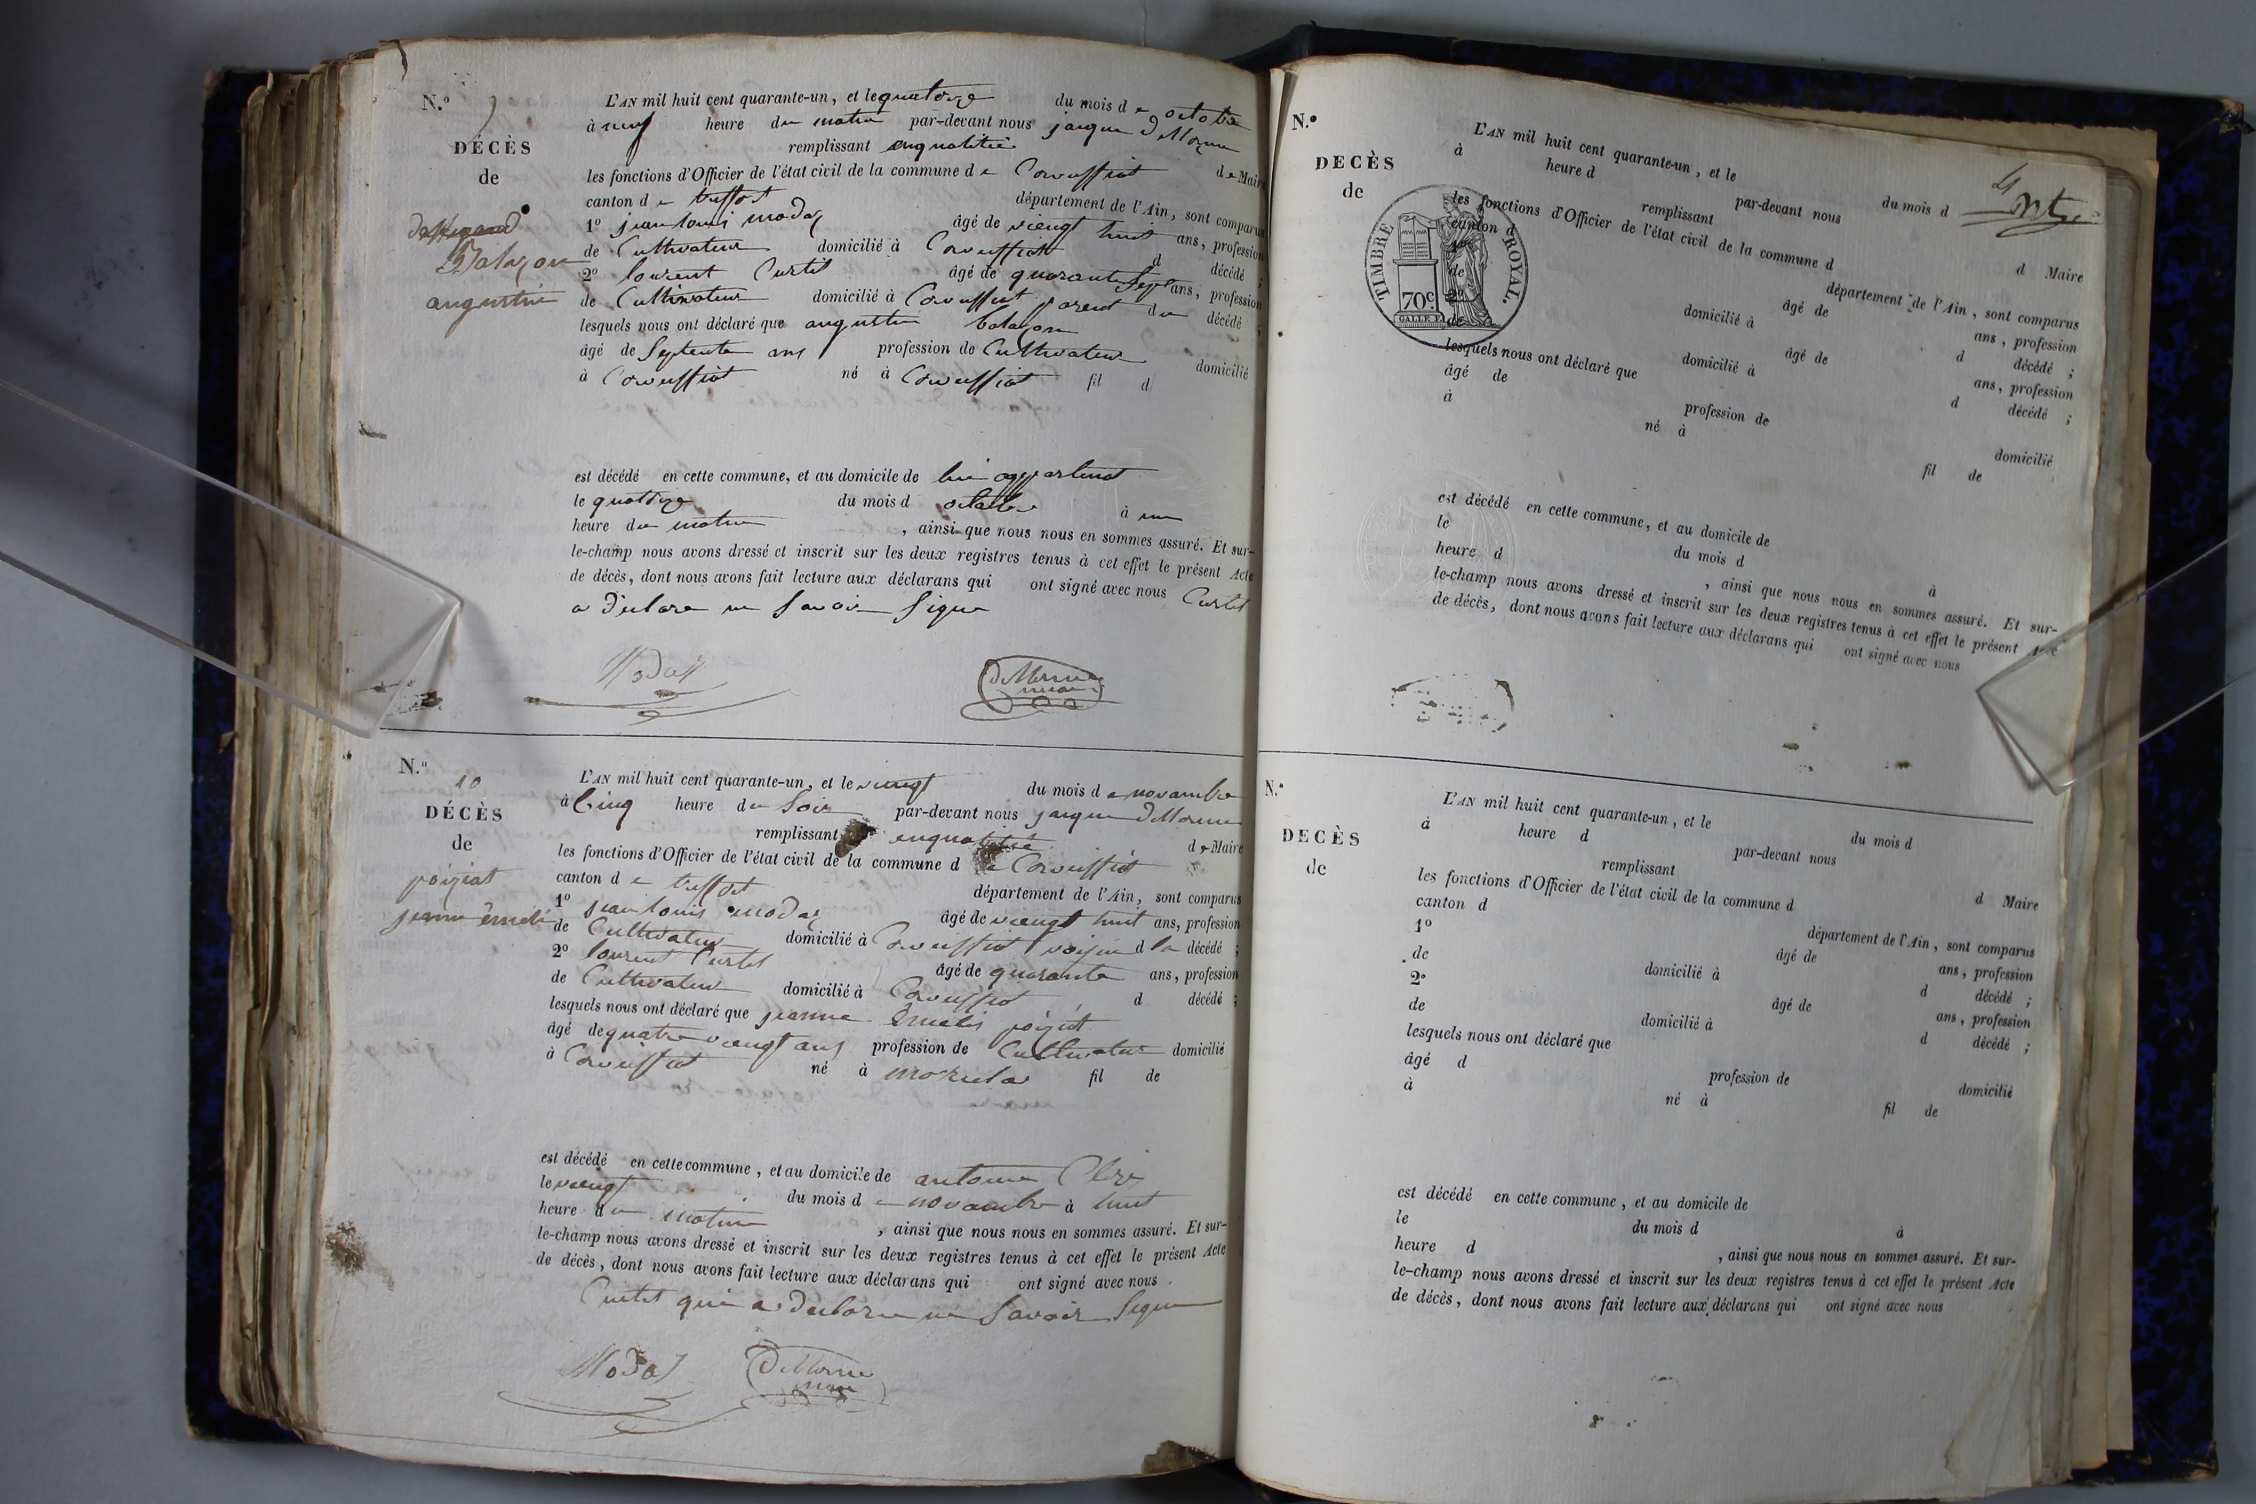 N.° 9
DÉCÈS
de
Balaçon
augustin
L'AN mil huit cent quarante-un, et le quatorze du mois de octobre
à neuf heure du matin par-devant nous jaque DMorme
remplissant enqualitée
les fonctions d'Officier de l'état civil de la commune de Corveissiat de Maire
canton de treffort département de l'Ain, sont comparus
1° jean louis modas âgé de viengt huit ans, profession
de Cultivateur domicilié à Corveissiat d décédé ;
2° laurent Curtil âgé de quarante Sept ans, profession
de Cultivateur domicilié à Corveissiat parent du décédé ;
lesquels nous ont déclaré que augustin balaçon
âgé de Septente ans profession de Cultivateur domicilié
à Corveissiat né à Corveissiat fil d
est décédé en cette commune, et au domicile de lui appartenat
le quattorze du mois d octobre à un
heure du matin , ainsi que nous nous en sommes assuré. Et sur-
le-champ nous avons dressé et inscrit sur les deux registres tenus à cet effet le présent Acte
de décès, dont nous avons fait lecture aux déclarans qui ont signé avec nous Curtil
a déclare ne Savoir Signe
Modas DMorme maire
N.° 10
DÉCÈS
de
poiziat
jeanne émeli
L'AN mil huit cent quarante-un, et le viengt du mois de novembre
à Cinq heure du Soir par-devant nous jaque DMorme
remplissant enqualitée de Maire
les fonctions d'Officier de l'état civil de la commune d e Corveissiat
canton de treffort département de l'Ain, sont comparus
1° jean louis modas âgé de viengt huit ans, profession
de Cultivateur domicilié à Corveissiat voisin d la décédé ;
2° laurent Curtil âgé de quarante ans, profession
de Cultivateur domicilié à Corveissiat d décédé ;
lesquels nous ont déclaré que jeanne émeli poiziat
âgé de quatre viengt ans profession de Cultivatur domicilié
à Corveissiat né à fil de
est décédé en cette commune, et au domicile de antoine
le viengt du mois de novembre à huit
heure du matin , ainsi que nous nous en sommes assuré. Et sur-
le-champ nous avons dressé et inscrit sur les deux registres tenus à cet effet le présent Acte
de décès, dont nous avons fait lecture aux déclarans qui ont signé avec nous
Curtil qui a déclare ne Savoir Signe
Modas DMorme maire
N.°
DECÈS
de
TIMBRE ROYAL.
70c.
L'AN mil huit cent quarante-un, et le du mois d
à heure d par-devant nous
remplissant d Maire
les fonctions d'Officier de l'état civil de la commune d
canton d département de l'Ain, sont comparus
1° âgé de ans, profession
de domicilié à d décédé ;
2° âgé de ans, profession
de domicilié à d décédé ;
lesquels nous ont déclaré que
âgé de profession de domicilié
à né à fil de
est décédé en cette commune, et au domicile de
le du mois d à
heure d , ainsi que nous nous en sommes assuré. Et sur-
le-champ nous avons dressé et inscrit sur les deux registres tenus à cet effet le présent Acte
de décès, dont nous avons fait lecture aux déclarans qui ont signé avec nous
N.°
DECÈS
de
L'AN mil huit cent quarante-un, et le du mois d
à heure d par-devant nous
remplissant d Maire
les fonctions d'Officier de l'état civil de la commune d
canton d département de l'Ain, sont comparus
1° âgé de ans, profession
de domicilié à d décédé ;
2° âgé de ans, profession
de domicilié à d décédé ;
lesquels nous ont déclaré que
âgé d profession de domicilié
à né à fil de
est décédé en cette commune, et au domicile de
le du mois d à
heure d , ainsi que nous nous en sommes assuré. Et sur-
le-champ nous avons dressé et inscrit sur les deux registres tenus à cet effet le présent Acte
de décès, dont nous avons fait lecture aux déclarans qui ont signé avec nous